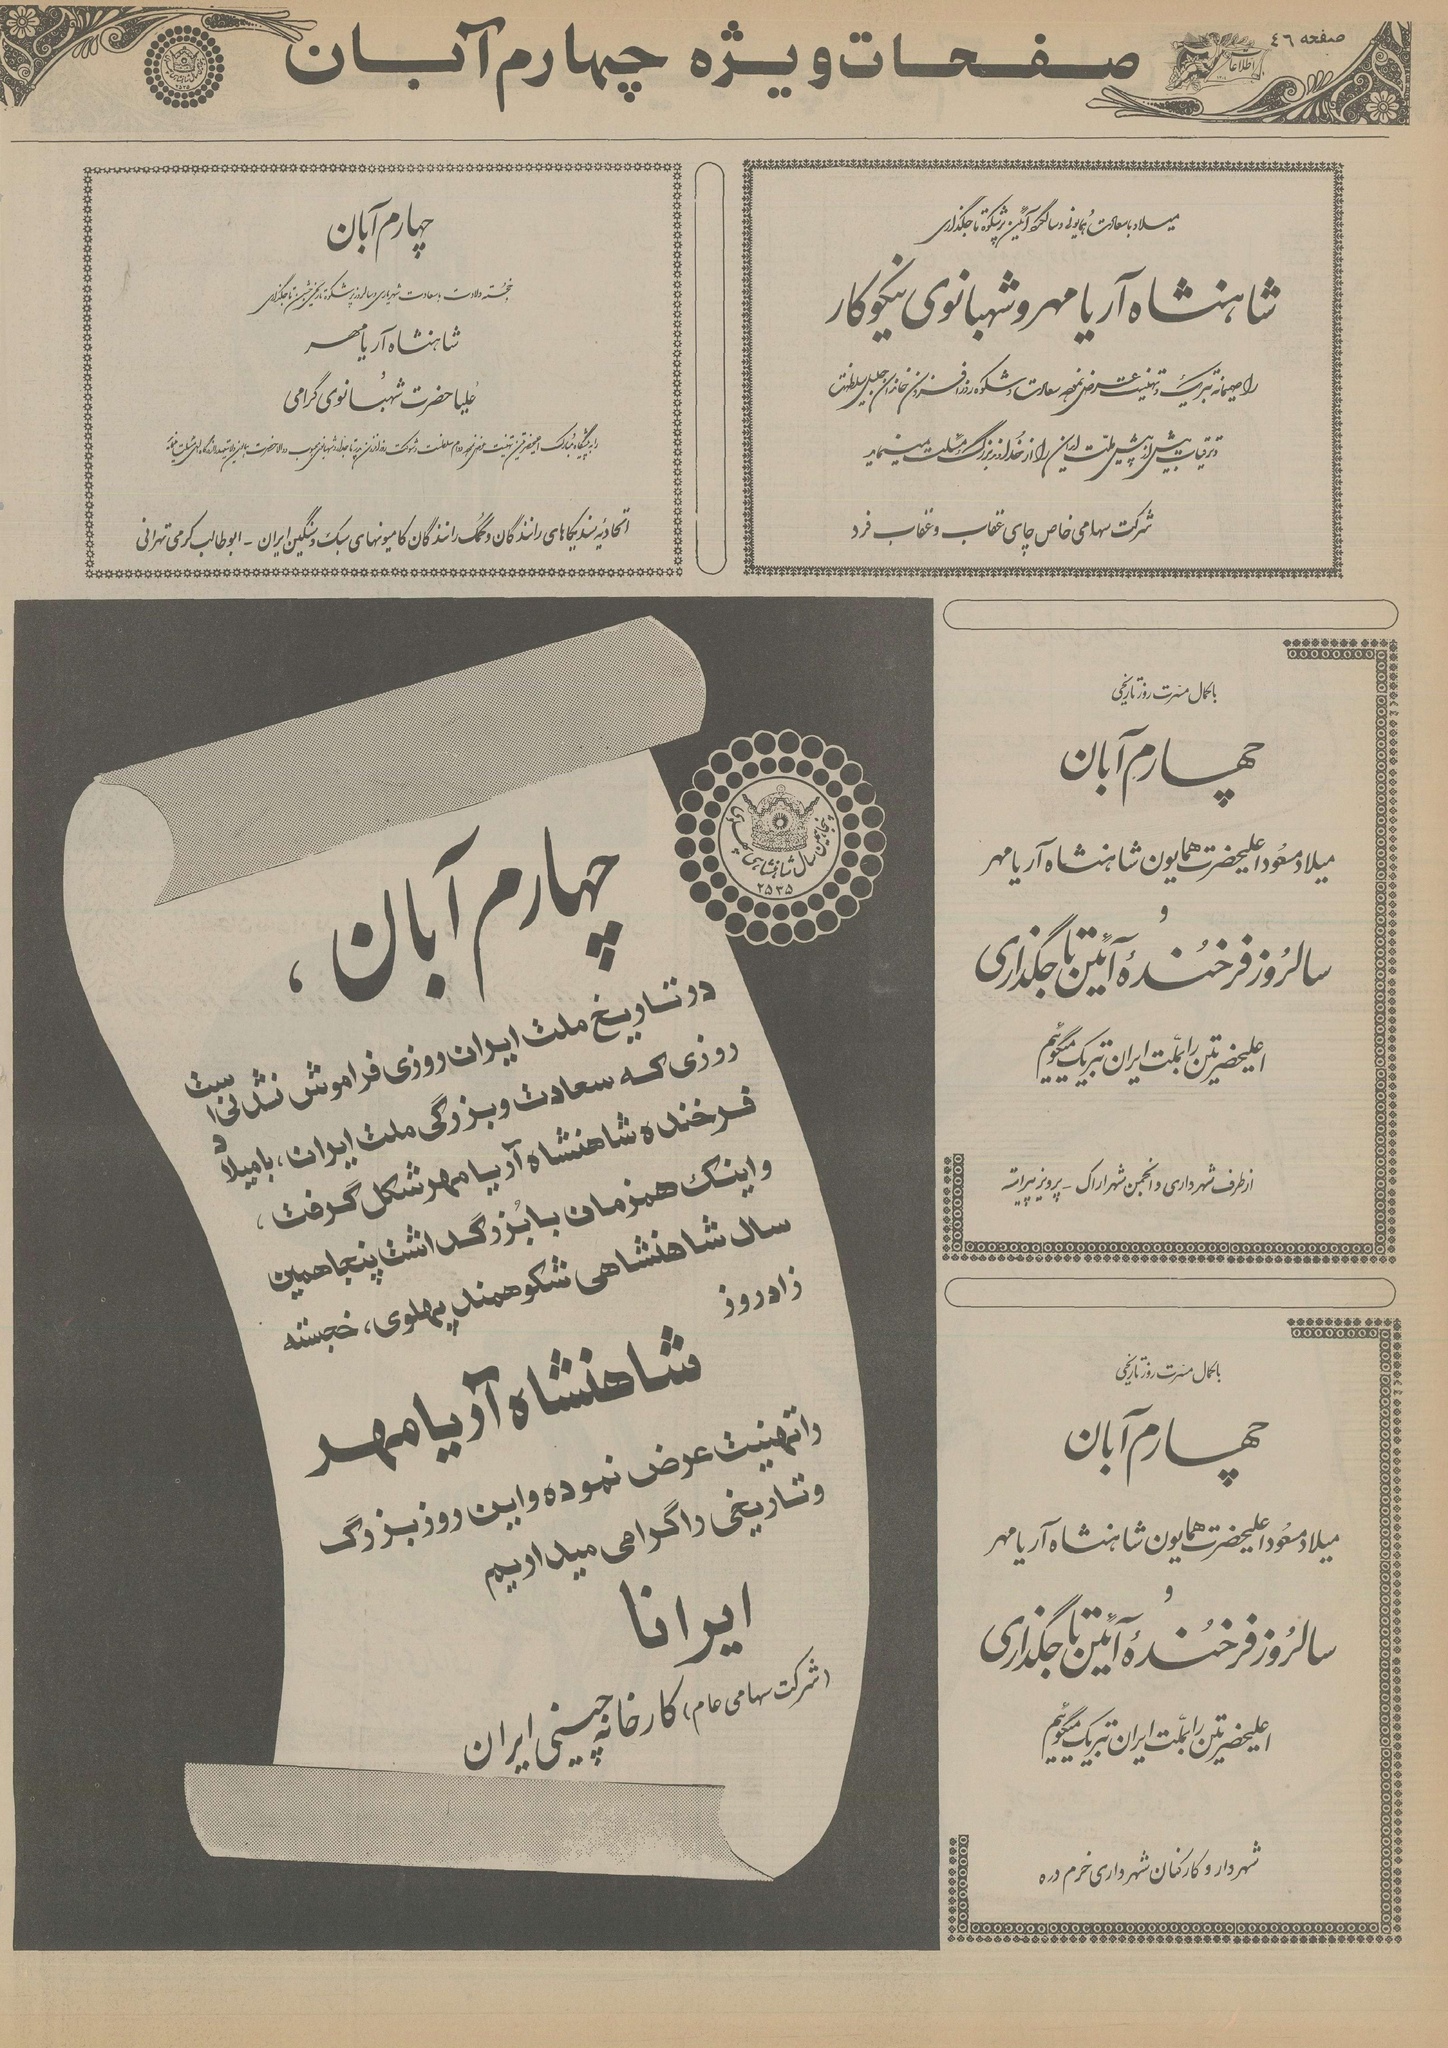 صفحه ۴۶
اطلاعات
صفحات ویژه چهارم آبان
میلاد با سعادت همایونی و سالگرد آئین پرشکوه تاجگذاری
شاهنشاه آریامهر و شهبانوی نیکوکار
را صمیمانه تبریک و تهنیت عرض نموده سعادت و شکوه روزافزون خاندان جلیل سلطنت
و ترقیات بیش از پیش ملت ایران را از خداوند بزرگ مسئلت مینماید
شرکت سهامی خاص چای عقاب و عقاب فرد
چهارم آبان
خجسته ولادت با سعادت شهریاری و سالروز پرشکوه تاریخی جشن تاجگذاری
شاهنشاه آریامهر
علیاحضرت شهبانوی گرامی
را به پیشگاه مبارک
اتحادیه سندیکاهای رانندگان و کمک رانندگان کامیونهای سبک و سنگین ایران - ابوطالب کرمی تهرانی
با کمال مسرت روز تاریخی
چهارم آبان
میلاد مسعود اعلیحضرت همایون شاهنشاه آریامهر
و
سالروز فرخنده آئین تاجگذاری
اعلیحضرتین را بملت ایران تبریک میگوئیم
از طرف شهرداری و انجمن شهر اراک - پرویز پیراسته
با کمال مسرت روز تاریخی
چهارم آبان
میلاد مسعود اعلیحضرت همایون شاهنشاه آریامهر
و
سالروز فرخنده آئین تاجگذاری
اعلیحضرتین را بملت ایران تبریک میگوئیم
شهردار و کارکنان شهرداری خرم دره
پنجاهمین سال شاهنشاهی پهلوی
۲۵۳۵
چهارم آبان،
در تاریخ ملت ایران روزی فراموش نشدنی است
روزی که سعادت و بزرگی ملت ایران، با میلاد
فرخنده شاهنشاه آریامهر شکل گرفت،
و اینک همزمان با بزرگداشت پنجاهمین
سال شاهنشاهی شکوهمند پهلوی، خجسته
زادروز
شاهنشاه آریامهر
را تهنیت عرض نموده و این روز بزرگ
و تاریخی را گرامی میداریم
ایرانا
(شرکت سهامی عام) کارخانه چینی ایران